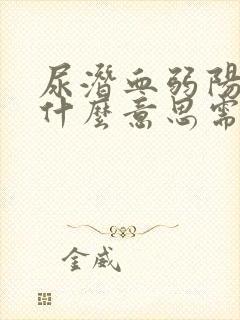 尿潛血弱陽
什麼意思需
金威